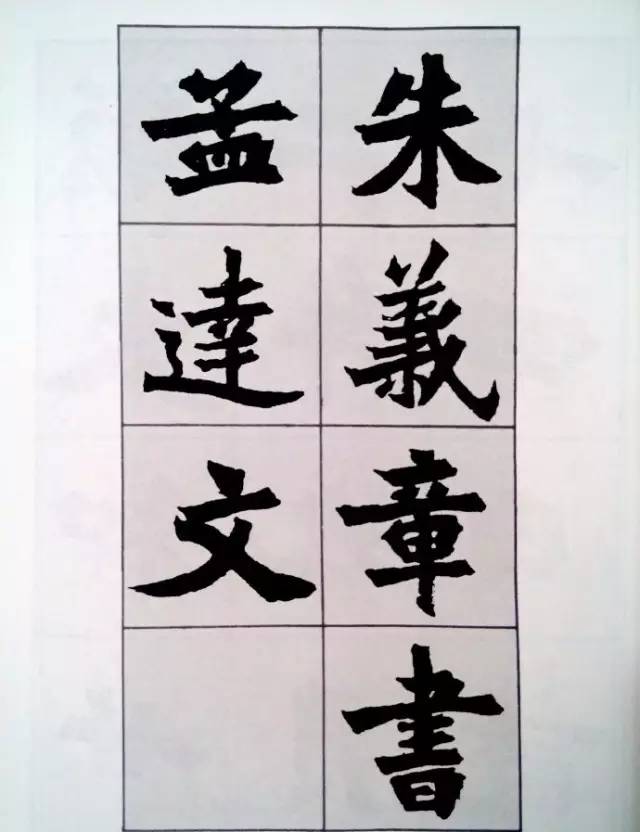 朱義章書
孟達文